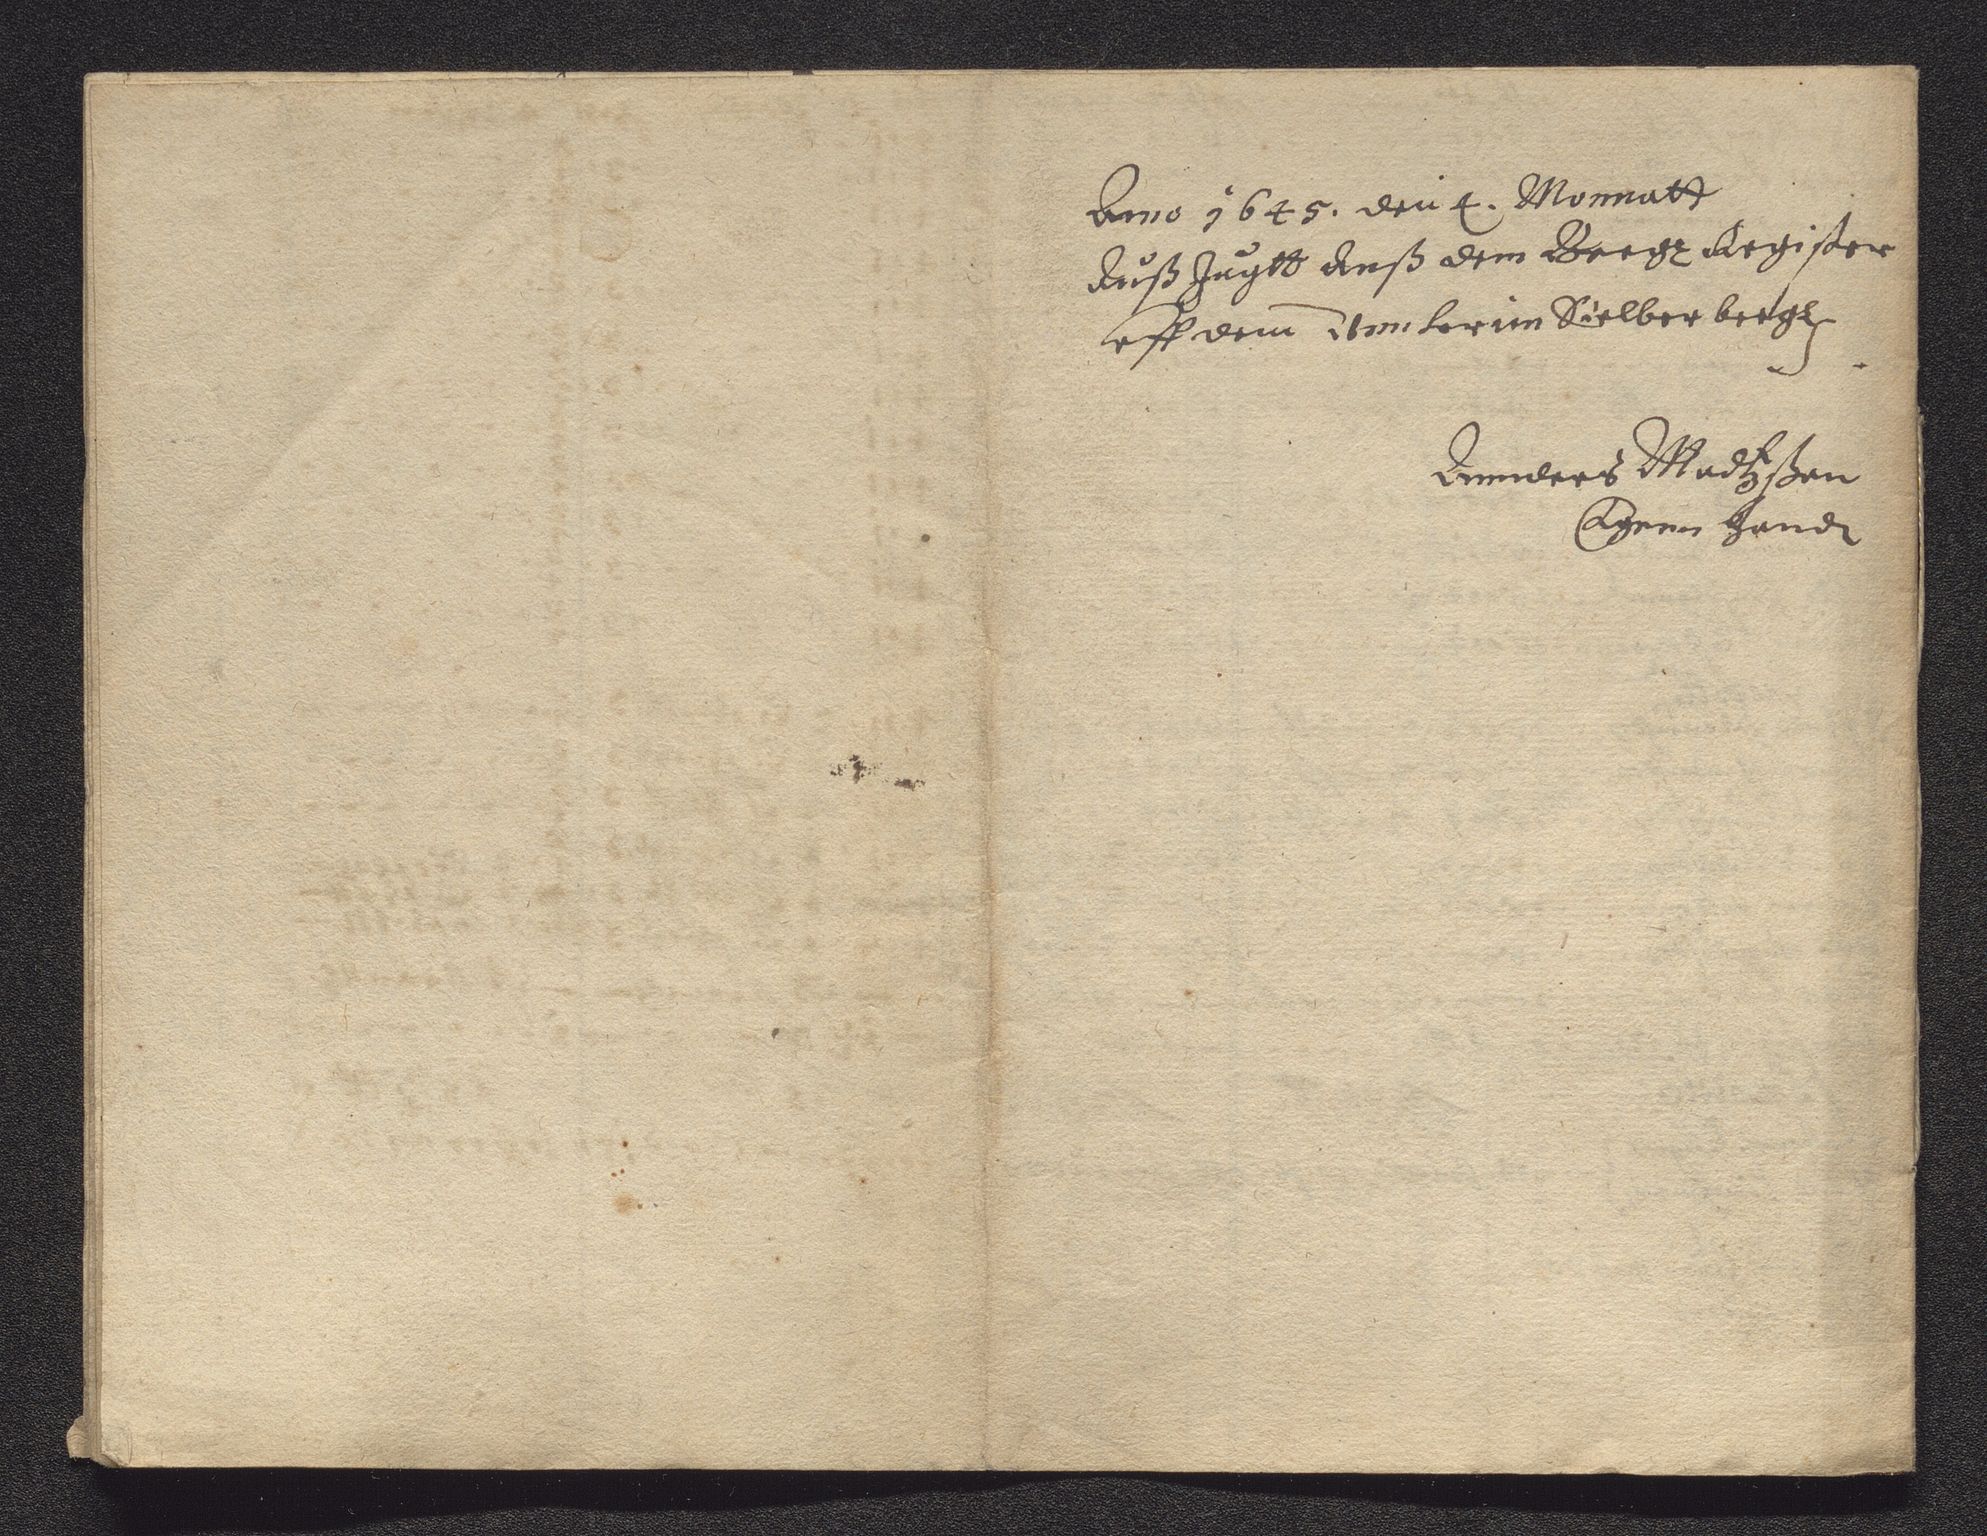 Anno 1645. den 4. Monnatt
Auß Zugtt Auß dem Bergk Register
Uff dem Unterien Sielber bergk
Annders Madtzßen
Egenn Handt